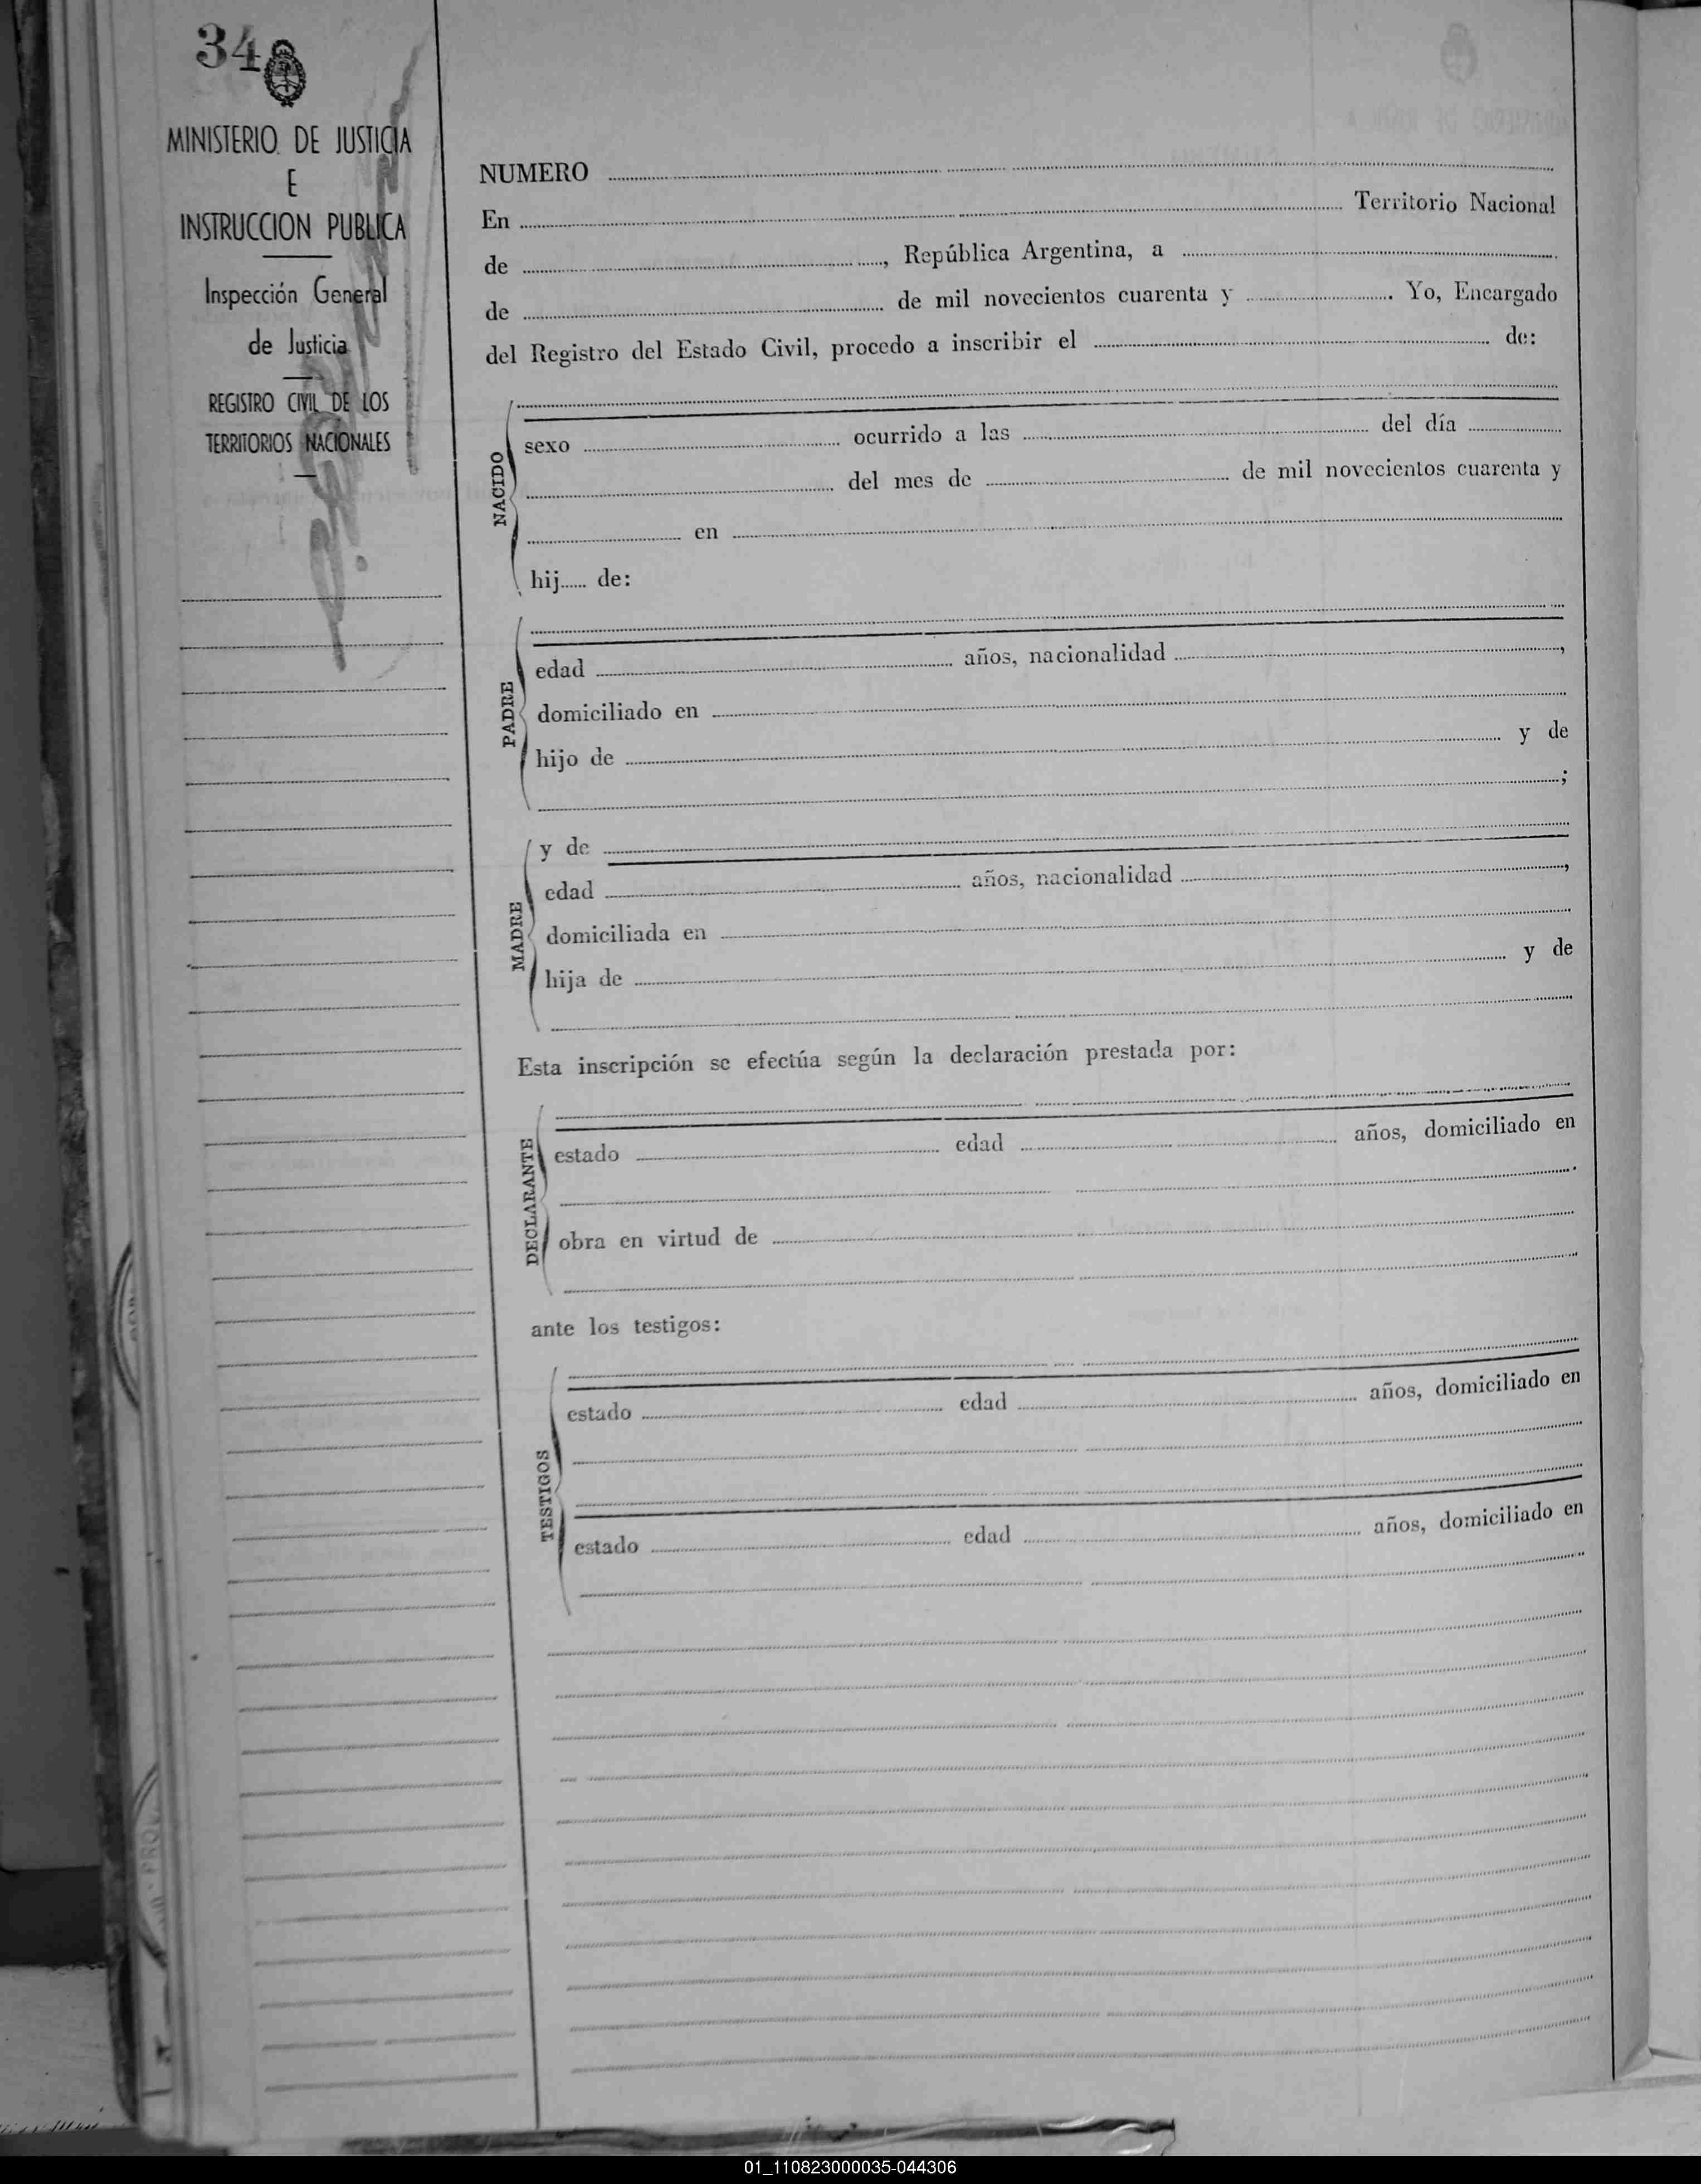 34
MINISTERIO DE JUSTICIA
E
INSTRUCCION PUBLICA
Inspección General
de Justicia
REGISTRO CIVIL DE LOS
TERRITORIOS NACIONALES
NUMERO
En Territorio Nacional
de , República Argentina, a
de de mil novecientos cuarenta y . Yo, Encargado
del Registro del Estado Civil, procedo a inscribir el de:
NACIDO
sexo ocurrido a las del día
del mes de de mil novecientos cuarenta y
en
hij...... de:
PADRE
edad años, nacionalidad ,
domiciliado en
hijo de y de
;
MADRE
y de
edad años, nacionalidad ,
domiciliada en
hija de y de
Esta inscripción se efectúa según la declaración prestada por:
DECLARANTE
estado edad años, domiciliado en
obra en virtud de
ante los testigos:
TESTIGOS
estado edad años, domiciliado en
estado edad años, domiciliado en
01_110823000035-044306